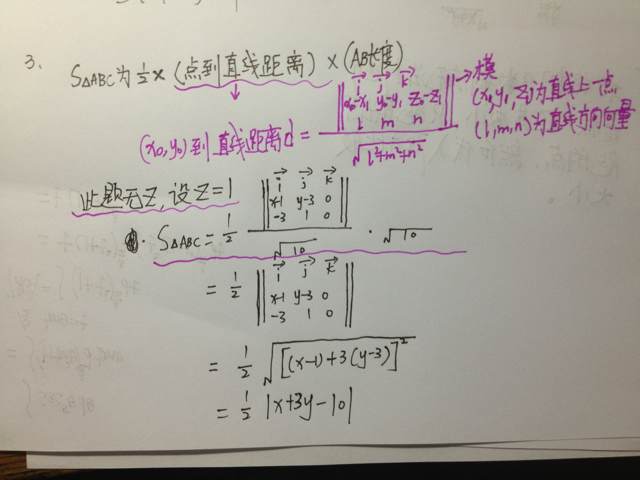 3. S△ABC为 1/2 × (点到直线距离) × (AB长度)
(x₀,y₀)到直线距离d = ‖i⃗ j⃗ k⃗; x₀-x₁ y₀-y₁ z₀-z₁; l m n‖ / √(l²+m²+n²)
→模
(x₁,y₁,z₁)为直线上一点,
(l,m,n)为直线方向向量
此题无Z,设Z=1
S△ABC = 1/2 ‖i⃗ j⃗ k⃗; x-1 y-3 0; -3 1 0‖ / √10 · √10
= 1/2 ‖i⃗ j⃗ k⃗; x-1 y-3 0; -3 1 0‖
= 1/2 √[(x-1)+3(y-3)]²
= 1/2 |x+3y-10|